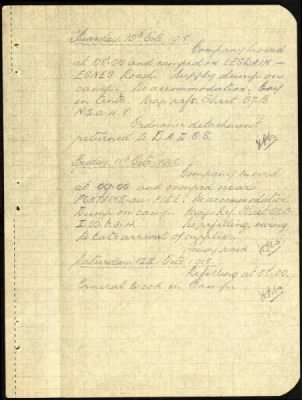 Thursday 10th Oct. 1918
Company moved
at 08.00 and camped on LESDAIN –
ESNES Road. Supply dump on
camp. No accommodation. Coy
in tents. Map refs. Sheet 57B
Ordnance detachment
returned to D.A.D.O.S.
Friday 11th Oct. 1918
Company moved
at 09.00 and camped near
No accommodation
Dump on camp. Map Ref. Sheet 57B
No refilling, owing
to late arrival of supplies.
Heavy rain
Saturday 12th Oct. 1918
Refilling at
General work in Camp.